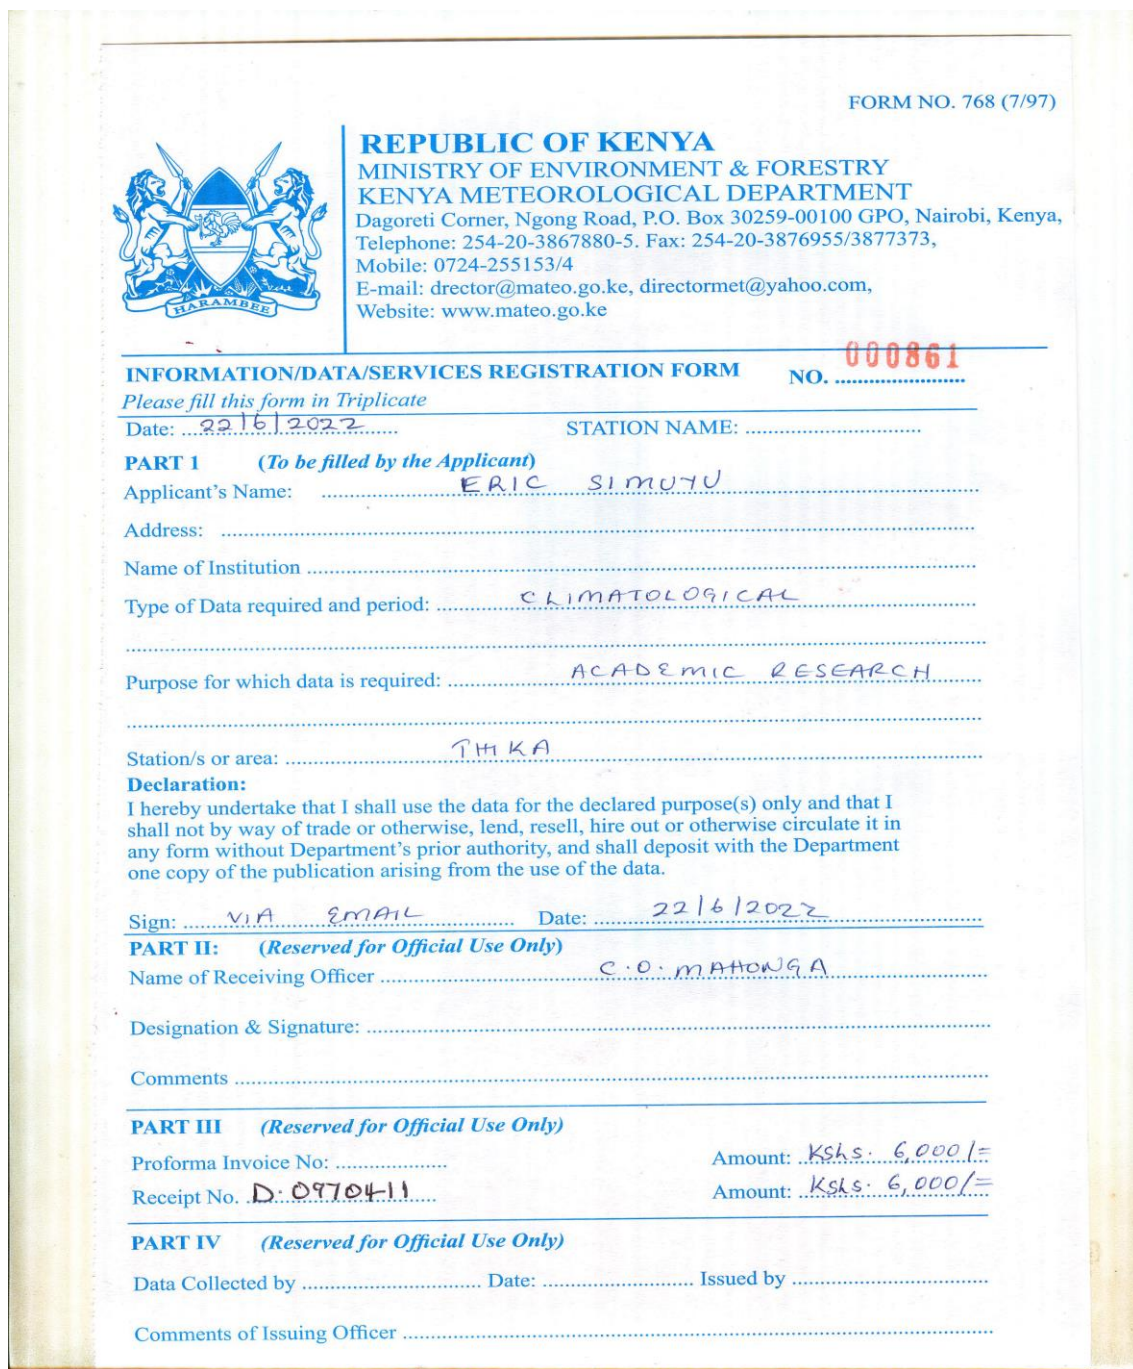 FORM NO. 768 (7/97)
REPUBLIC OF KENYA
MINISTRY OF ENVIRONMENT & FORESTRY
KENYA METEOROLOGICAL DEPARTMENT
Dagoreti Corner, Ngong Road, P.O. Box 30259-00100 GPO, Nairobi, Kenya,
Telephone: 254-20-3867880-5. Fax: 254-20-3876955/3877373,
Mobile: 0724-255153/4
E-mail: drector@mateo.go.ke, directormet@yahoo.com,
Website: www.mateo.go.ke
HARAMBEE
INFORMATION/DATA/SERVICES REGISTRATION FORM NO. 000861
Please fill this form in Triplicate
Date: 22/6/2022 STATION NAME:
PART 1 (To be filled by the Applicant)
Applicant's Name: ERIC SIMUYU
Address:
Name of Institution
Type of Data required and period: CLIMATOLOGICAL
Purpose for which data is required: ACADEMIC RESEARCH
Station/s or area: THIKA
Declaration:
I hereby undertake that I shall use the data for the declared purpose(s) only and that I
shall not by way of trade or otherwise, lend, resell, hire out or otherwise circulate it in
any form without Department's prior authority, and shall deposit with the Department
one copy of the publication arising from the use of the data.
Sign: VIA EMAIL Date: 22/6/2022
PART II: (Reserved for Official Use Only)
Name of Receiving Officer C.O. MAHONGA
Designation & Signature:
Comments
PART III (Reserved for Official Use Only)
Proforma Invoice No: Amount: Kshs. 6,000/=
Receipt No. D.0970411 Amount: Kshs. 6,000/=
PART IV (Reserved for Official Use Only)
Data Collected by Date: Issued by
Comments of Issuing Officer